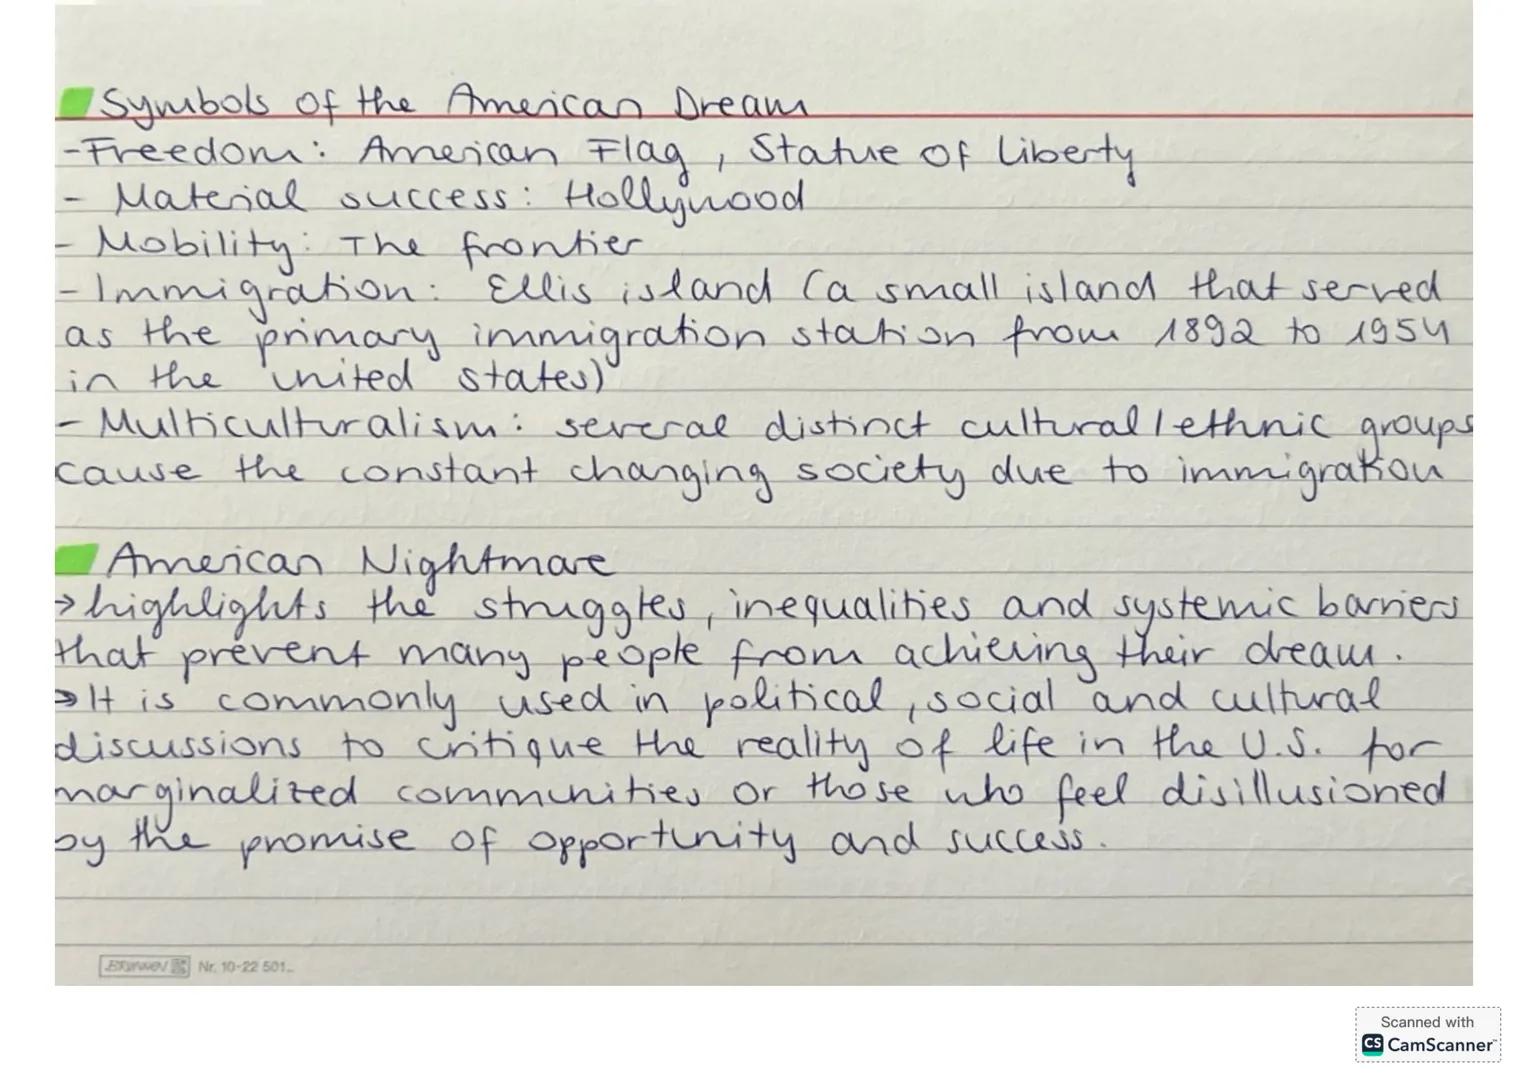 Symbols of the American Dream
-Freedom: American Flag, Statue of Liberty
- Material success: Hollywood
- Mobility: The frontier
- Immigration: Ellis island (a small island that served
as the primary immigration station from 1892 to 1954
in the united states)
- Multiculturalism: several distinct cultural/ethnic groups
cause the constant changing society due to immigration
American Nightmare
→ highlights the struggles, inequalities and systemic barriers
that prevent many people from achieving their dream.
→ It is commonly used in political, social and cultural
discussions to critique the reality of life in the U.S. for
marginalized communities or those who feel disillusioned
by the promise of opportunity and success.
Nr. 10-22 501
Scanned with
CS CamScanner